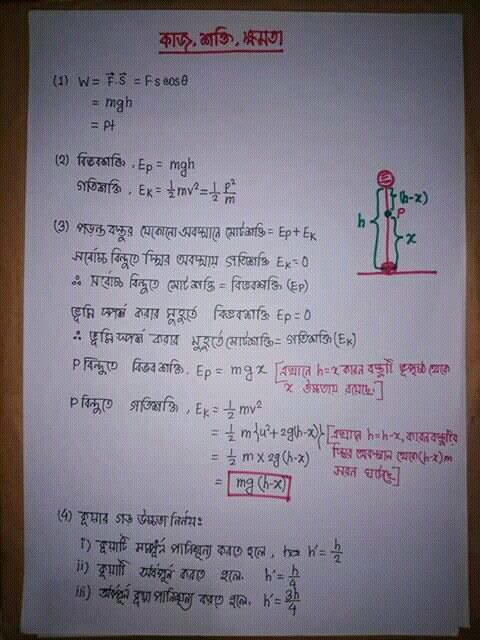 কাজ, শক্তি, ক্ষমতা
(1) W = F⃗.S⃗ = Fs cosθ
= mgh
= pt
(2) বিভবশক্তি, Ep = mgh
গতিশক্তি, EK = ½mv² = ½ p²/m
(h-x)
P
h
x
(3) পড়ন্ত বস্তুর যেকোনো অবস্থানে মোটশক্তি = Ep + EK
সর্বোচ্চ বিন্দুতে স্থির অবস্থায় গতিশক্তি EK = 0
∴ সর্বোচ্চ বিন্দুতে মোটশক্তি = বিভবশক্তি (Ep)
ভূমি স্পর্শ করার মুহূর্তে বিভবশক্তি Ep = 0
∴ ভূমি স্পর্শ করার মুহূর্তে মোটশক্তি = গতিশক্তি (EK)
P বিন্দুতে বিভবশক্তি, Ep = mgx [এখানে h=x কারন বস্তুটি ভূপৃষ্ঠ থেকে
x উচ্চতায় রয়েছে।]
P বিন্দুতে গতিশক্তি, EK = ½mv²
= ½ m{u²+2g(h-x)} [এখানে h=h-x, কারন বস্তুটির
= ½ m × 2g(h-x) স্থির অবস্থান থেকে (h-x)m
= mg(h-x) সরন ঘটেছে।]
(4) কুয়ার গড় উচ্চতা নির্নয়ঃ
i) কুয়াটি সম্পূর্ন পানিশূন্য করতে হলে, h' = h/2
ii) কুয়াটি অর্ধপূর্ন করতে হলে, h' = h/4
iii) অর্ধপূর্ন কুয়া পানিশূন্য করতে হলে, h' = 3h/4